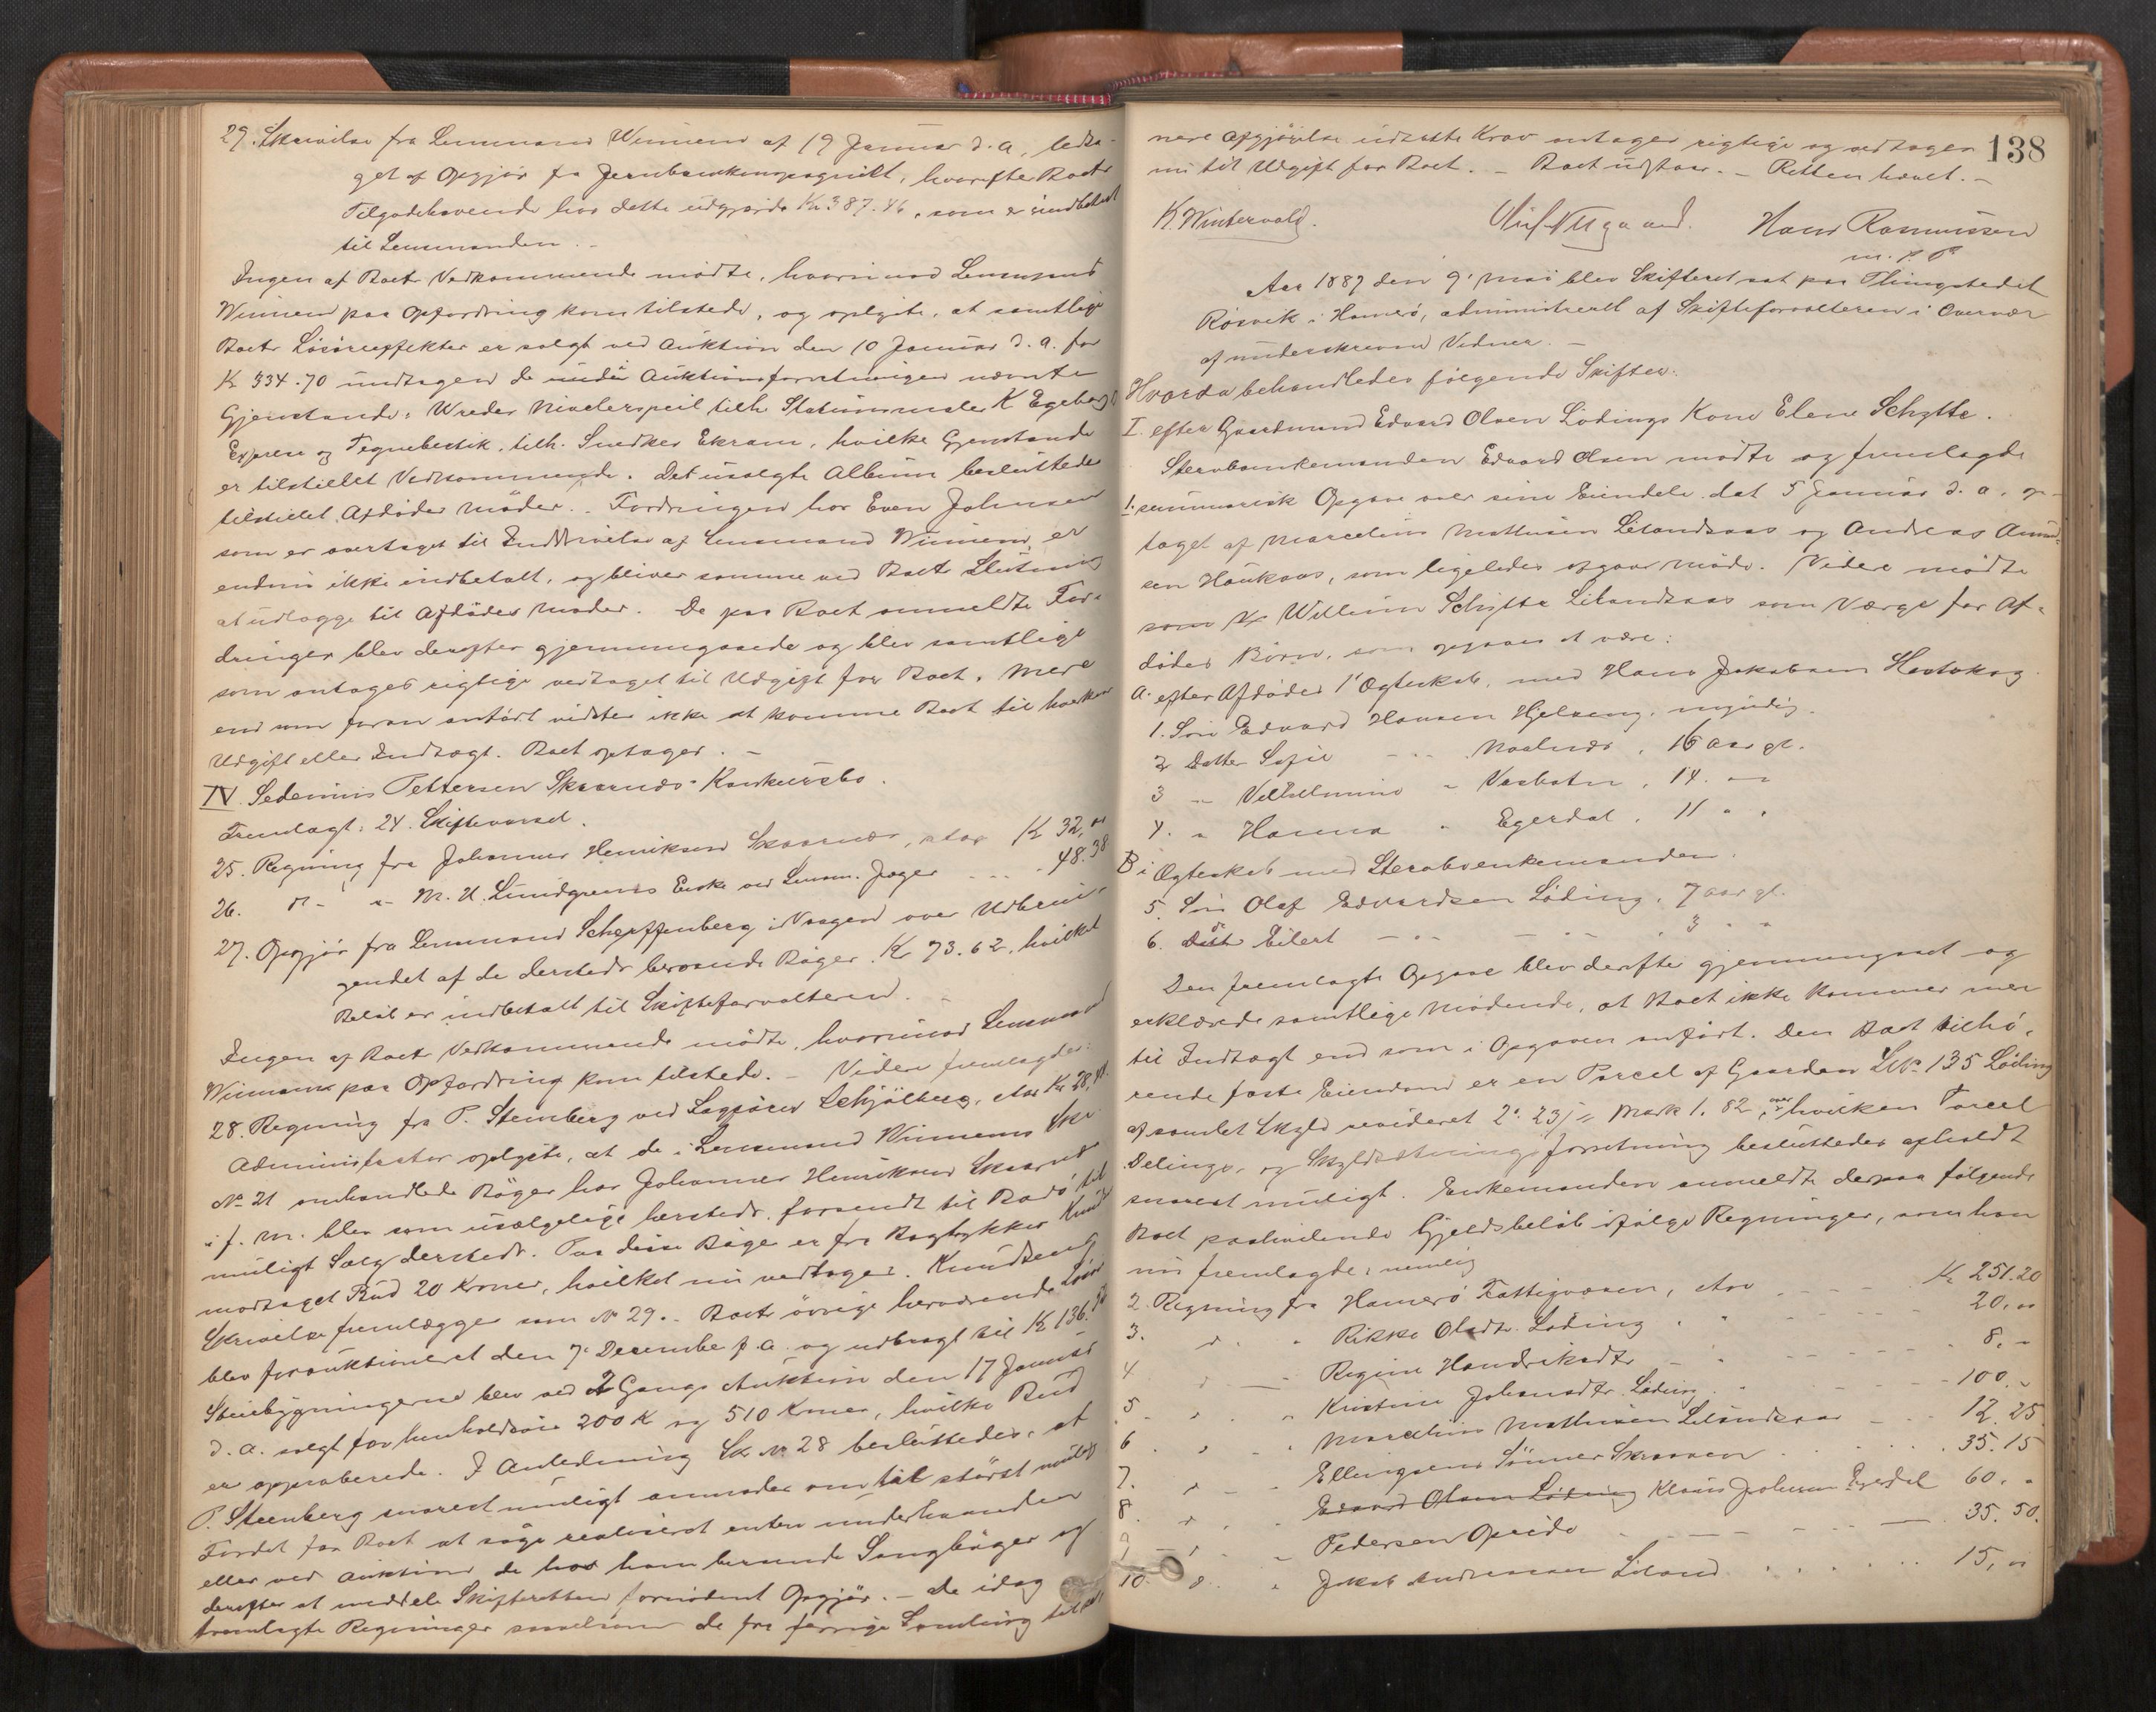 29. Skrivelse fra Lensmand Winnem af 19 Januar d. a. ledsa-
get af Opgjør fra Jernbankompagniet, hvorefter Boets
Tilgodehavende hos dette udgjorde Kr 387.46, som er indbetalt
til Lensmanden. -
Ingen af Boets Vedkommende mødte, hvorimod Lensmand
Winnem paa Opfordring kom tilstede, og oplyste, at samtlige
Boets Løsøreeffekter er solgt ved Auktion den 10 Januar d. a. for
Kr 334.70 undtagen de under Auktionsforretningen nævnte
Gjenstande: Wredes Nivelerspeil tilh. Stationsmester K Egeberg
og Tegnebestik, tilh. Snedker Ekram, hvilke Gjenstande
er tilstillet Vedkommende. Det usolgte Album besluttedes
tilstillet Afdødes Moder. - Fordringen hos Even Johnsen
som er overtaget til Inddrivelse af Lensmand Winnem, er
endnu ikke indbetalt, og bliver samme ved Boets Slutning
at udlægge til Afdødes Moder. De paa Boet anmeldte For-
dringer blev derefter gjennemgaaede og blev samtlige
som antages rigtige vedtaget til Udgift for Boet. Mere
end som foran anført vidstes ikke at komme Boet til hverken
Udgift eller Indtægt. Boet optages. -
IV. Sedenius Pettersen Skaarnes Konkursbo.
Fremlagt: 24. Skiftevarsel.
25. Regning fra Johannes Henriksen Skaarnes, stor Kr 32,00
26. " - " M. U. Lundgrens Enke ved Lensm. Jæger - - - 48.38
27. Opgjør fra Lensmand Scherffenberg i Vaagen over Udbrin-
gendet af de dersteds beroende Bøger. Kr 73.62, hvilket
Beløb er indbetalt til Skifteforvalteren. -
Ingen af Boets Vedkommende mødte, hvorimod Lensmand
Winnem paa Opfordring kom tilstede. - Videre fremlagdes:
28. Regning fra P. Steinberg ved Sagfører Schjølberg, stor Kr 28,40.
Administrator oplyste, at de i Lensmand Winnems Skr
No 21 omhandlede Bøger hos Johannes Henriksen Skaarnes
i f. M. blev som usælgelige hersteds forsendt til Bodø til
muligt Salg dersteds. Paa disse Bøger er fra Bogtrykker Knud
modtaget Bud 20 Kroner, hvilket nu vedtages. Knudsens
Skrivelse fremlægges som No 29. - Boets øvrige herværende Løsøre
blev forauktioneret den 7. December f. a. og udbragt til Kr 136.
Steinbygningerne blev ved 2 Gangs Auktion den 17 Januar
d. a. solgt for henholdsvis 200 K og 510 Kroner, hvilke Bud
er approberede. I Anledning Skr No 28 besluttedes, at
P. Steenberg snarest muligt anmodes om til størst muligt
Fordel for Boet at søge realiseret enten underhaanden
eller ved Auktion de hos ham beroende Sangbøger og
derefter at meddele Skifteretten fornødent Opgjør. - De idag
fremlagte Regninger saavelsom de fra forrige Samling til
138
nere Afgjørelse udsatte Krav antages rigtige og vedtages
nu til Udgift for Boet. - Boet udstaar. - Retten hævet. -
K. Wintervold. Hans Rasmussen
m. p. P.
Aar 1887 den 9' Mai blev Skifteret sat paa Thingstedet
Røsvik i Hamerø, administreret af Skifteforvalteren i Overvær
af underskrevne Vidner. -
Hvorda behandledes følgende Skifter:
I. efter Gaardmand Edvard Olsen Lødings Kone Elene Schytte.
Stervbænkemanden Edvard Olsen mødte og fremlagde
1. summarisk Opgave over sine Eiendele dat 5 Januar d. a. op-
taget af Marcelius Mathisen Lilandsaas og Andreas Amund-
sen Haukaas, som ligeledes opgaar møde. Videre mødte
som Willum Schytte Lilandsaas som Værge for Af-
dødes Børn, som opgaves at være:
A. efter Afdødes 1' Ægteskab, med Hans Jakobsen
1. Søn Edvard Hansen Hjelseng, myndig.
2 Datter Sofie - - - 16 Aar gl.
3 - Vilhelmine " Vasbotn, 14. - "
4. " Hanna " Egerdal, 11 " "
B i Ægteskab med Stervboenkemanden.
5. Søn Olaf Edvardsen Løding, 7 Aar gl.
6. Eilert - " - - " - , 3 " "
Den fremlagte Opgave blev derefter gjennemgaaet og
erklærede samtlige Mødende, at Boet ikke kommer mere
til Indtægt end som i Opgaven anført. Den Boet tilhø-
rende faste Eiendom er en Parcel af Gaarden LNo 135 Løding
af samlet Skyld revideret Mark 1.82, over hvilken Parcel
Delings- og Skyldsætningsforretning besluttedes afholdt
snarest muligt. Enkemanden anmeldte derpaa følgende
Boet paahvilende Gjeldsbeløb ifølge Regninger, som han
nu fremlagde, nemlig
2. Regning fra Hamerø Fattigvæsen, stor - - - Kr 251.20
3. " " Rikke Olsdtr. Løding " - - - 20,00
4 " - Regine Hendriksdtr - - - 8,-
5 " " Kristine Johansdtr. Løding - - - 100.-
6 " " Marcelius Mathisen Lilandsaas - - - 12.25
7. " - Ellingsens Sønner Skraaven - - - 35.15
8. " " Edvard Olsen Løding Klaus Johnsen Egerdal 60. "
9 " - Pedersen - - - 35.50.
10. " " Jakob Andreassen Liland - - - 15,00